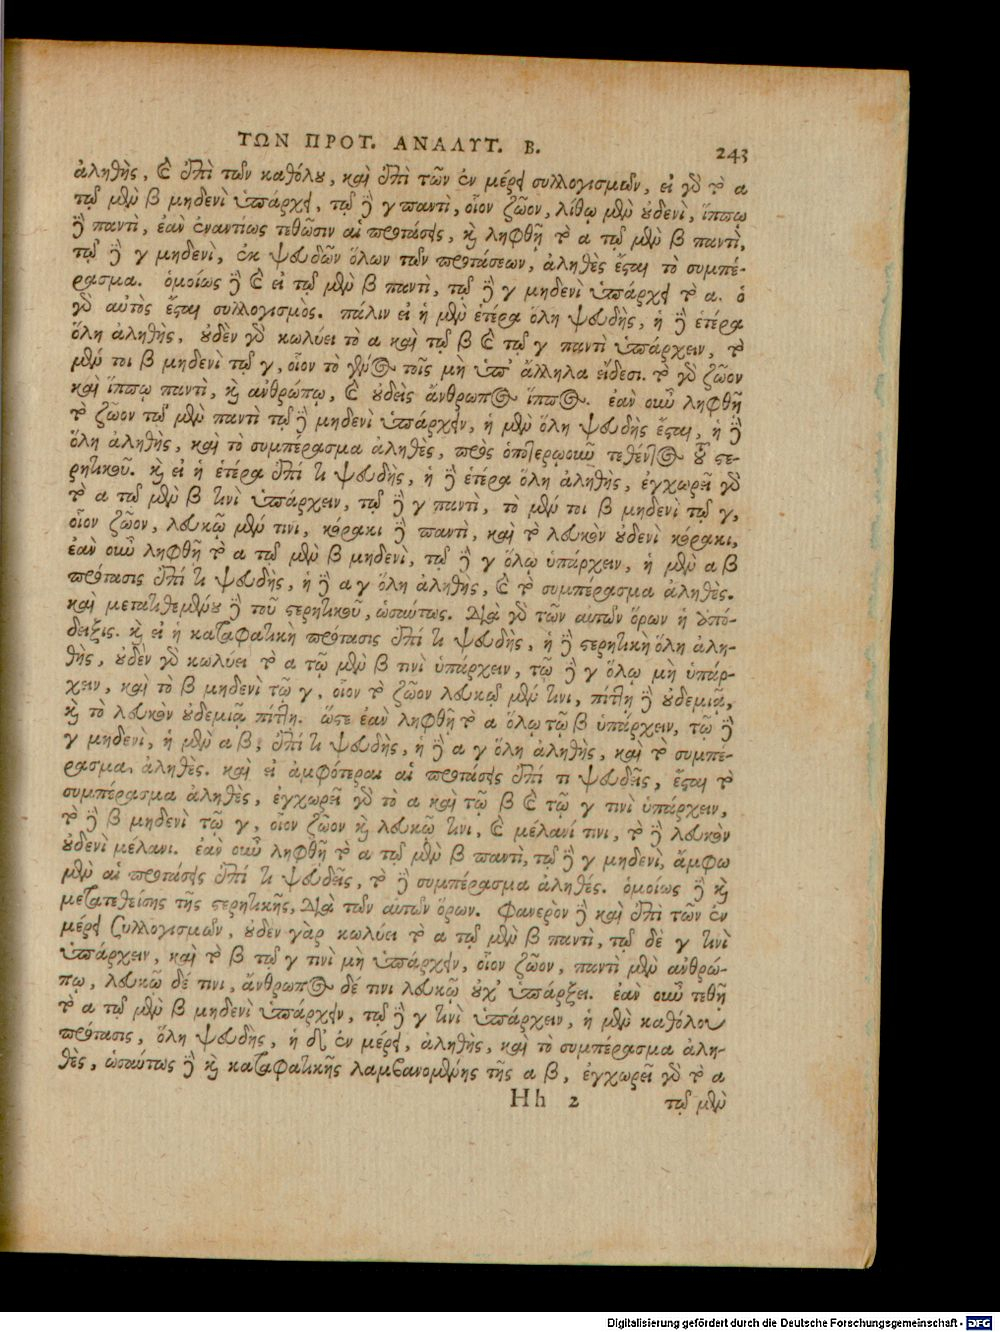 ΤΩΝ ΠΡΟΤ. ΑΝΑΛΥΤ. Β.
243
ἀληθὴς, καὶ ἐπὶ τῶν καθόλου, καὶ ἐπὶ τῶν ἐν μέρει συλλογισμῶν, εἰ γὰρ τὸ α
τῷ μὲν β μηδενὶ ὑπάρχει, τῷ δὲ γ παντὶ, οἷον ζῶον, λίθῳ μὲν οὐδενὶ, ἵππῳ
δὲ παντὶ, ἐὰν ἐναντίως τεθῶσιν αἱ προτάσεις, καὶ ληφθῇ τὸ α τῷ μὲν β παντὶ,
τῷ δὲ γ μηδενὶ, ἐκ ψευδῶν ὅλων τῶν προτάσεων, ἀληθὲς ἔσται τὸ συμπέ-
ρασμα. ὁμοίως δὲ καὶ εἰ τῷ μὲν β παντὶ, τῷ δὲ γ μηδενὶ ὑπάρχει τὸ α. ὁ
γὰρ αὐτὸς ἔσται συλλογισμός. πάλιν εἰ ἡ μὲν ἑτέρα ὅλη ψευδὴς, ἡ δὲ ἑτέρα
ὅλη ἀληθὴς, οὐδὲν γὰρ κωλύει τὸ α καὶ τῷ β καὶ τῷ γ παντὶ ὑπάρχειν, τὸ
μέν τοι β μηδενὶ τῷ γ, οἷον τὸ γένος τοῖς μὴ ὑπ' ἄλληλα εἴδεσι. τὸ γὰρ ζῶον
καὶ ἵππῳ παντὶ, καὶ ἀνθρώπῳ, καὶ οὐδεὶς ἄνθρωπος ἵππος. ἐὰν οὖν ληφθῇ
τὸ ζῶον τῷ μὲν παντὶ τῷ δὲ μηδενὶ ὑπάρχειν, ἡ μὲν ὅλη ψευδὴς ἔσται, ἡ δὲ
ὅλη ἀληθὴς, καὶ τὸ συμπέρασμα ἀληθὲς, πρὸς ὁποτερῳοῦν τεθέντος τοῦ στε-
ρητικοῦ. καὶ εἰ ἡ ἑτέρα ἐπί τι ψευδὴς, ἡ δὲ ἑτέρα ὅλη ἀληθὴς, ἐγχωρεῖ γὰρ
τὸ α τῷ μὲν β τινὶ ὑπάρχειν, τῷ δὲ γ παντὶ, τὸ μέν τοι β μηδενὶ τῷ γ,
οἷον ζῶον, λευκῷ μέν τινι, κόρακι δὲ παντὶ, καὶ τὸ λευκὸν οὐδενὶ κόρακι,
ἐὰν οὖν ληφθῇ τὸ α τῷ μὲν β μηδενὶ, τῷ δὲ γ ὅλῳ ὑπάρχειν, ἡ μὲν α β
πρότασις ἐπί τι ψευδὴς, ἡ δὲ α γ ὅλη ἀληθὴς, καὶ τὸ συμπέρασμα ἀληθές.
καὶ μετατιθεμένου δὲ τοῦ στερητικοῦ, ὡσαύτως. διὰ γὰρ τῶν αὐτῶν ὅρων ἡ ἀπό-
δειξις. καὶ εἰ ἡ καταφατικὴ πρότασις ἐπί τι ψευδὴς, ἡ δὲ στερητικὴ ὅλη ἀλη-
θὴς, οὐδὲν γὰρ κωλύει τὸ α τῷ μὲν β τινὶ ὑπάρχειν, τῷ δὲ γ ὅλῳ μὴ ὑπάρ-
χειν, καὶ τὸ β μηδενὶ τῷ γ, οἷον τὸ ζῶον λευκῷ μέν τινι, πίττῃ δὲ οὐδεμιᾷ,
καὶ τὸ λευκὸν οὐδεμιᾷ πίττῃ. ὥστε ἐὰν ληφθῇ τὸ α ὅλῳ τῷ β ὑπάρχειν, τῷ δὲ
γ μηδενὶ, ἡ μὲν α β, ἐπί τι ψευδὴς, ἡ δὲ α γ ὅλη ἀληθὴς, καὶ τὸ συμπέ-
ρασμα ἀληθές. καὶ εἰ ἀμφότεραι αἱ προτάσεις ἐπί τι ψευδεῖς, ἔσται τὸ
συμπέρασμα ἀληθὲς, ἐγχωρεῖ γὰρ τὸ α καὶ τῷ β καὶ τῷ γ τινὶ ὑπάρχειν,
τὸ δὲ β μηδενὶ τῷ γ, οἷον ζῶον καὶ λευκῷ τινι, καὶ μέλανί τινι, τὸ δὲ λευκὸν
οὐδενὶ μέλανι. ἐὰν οὖν ληφθῇ τὸ α τῷ μὲν β παντὶ, τῷ δὲ γ μηδενὶ, ἄμφω
μὲν αἱ προτάσεις ἐπί τι ψευδεῖς, τὸ δὲ συμπέρασμα ἀληθές. ὁμοίως δὲ καὶ
μετατεθείσης τῆς στερητικῆς, διὰ τῶν αὐτῶν ὅρων. Φανερὸν δὲ καὶ ἐπὶ τῶν ἐν
μέρει συλλογισμῶν, οὐδὲν γὰρ κωλύει τὸ α τῷ μὲν β παντὶ, τῷ δὲ γ τινὶ
ὑπάρχειν, καὶ τὸ β τῷ γ τινὶ μὴ ὑπάρχειν, οἷον ζῶον, παντὶ μὲν ἀνθρώ-
πῳ, λευκῷ δέ τινι, ἄνθρωπος δέ τινι λευκῷ οὐχ' ὑπάρξει. ἐὰν οὖν τεθῇ
τὸ α τῷ μὲν β μηδενὶ ὑπάρχειν, τῷ δὲ γ τινὶ ὑπάρχειν, ἡ μὲν καθόλου
πρότασις, ὅλη ψευδὴς, ἡ δ' ἐν μέρει, ἀληθὴς, καὶ τὸ συμπέρασμα ἀλη-
θὲς, ὡσαύτως δὲ καὶ καταφατικῆς λαμβανομένης τῆς α β, ἐγχωρεῖ γὰρ τὸ α
Hh 2
τῷ μὲν
Digitalisierung gefördert durch die Deutsche Forschungsgemeinschaft - DFG